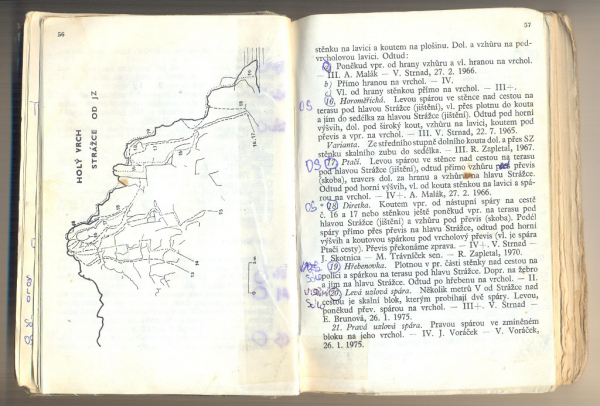 56
HOLÝ VRCH
STRÁŽCE OD JZ
57
stěnku na lavici a koutem na plošinu. Dol. a vzhůru na pod-
vrcholovou lavici. Odtud:
a) Poněkud vpr. od hrany vzhůru a vl. hranou na vrchol.
— III. A. Malák — V. Strnad, 27. 2. 1966.
b) Přímo hranou na vrchol. — IV.
c) Vl. od hrany stěnkou přímo na vrchol. — III+.
OS
16. Horoměřická. Levou spárou ve stěnce nad cestou na
terasu pod hlavou Strážce (jištění), vl. přes plotnu do koutu
a jím do sedélka za hlavou Strážce (jištění). Odtud pod horní
výšvih, dol. pod široký kout, vzhůru na lavici, koutem pod
převis a vpr. na vrchol. — III. V. Strnad, 22. 7. 1965.
Varianta. Ze středního stupně dolního kouta dol. a přes SZ
stěnku skalního zubu do sedélka. — III. R. Zapletal, 1967.
OS
17. Ptačí. Levou spárou ve stěnce nad cestou na terasu
pod hlavou Strážce (jištění), odtud přímo vzhůru pod převis
(skoba), travers dol. za hranu a vzhůru na hlavu Strážce.
Odtud pod horní výšvih, vl. od kouta stěnkou na lavici a spá-
rou na vrchol. — IV+. A. Malák, 27. 2. 1966.
OS
18. Diretka. Koutem vpr. od nástupní spáry na cestě
č. 16 a 17 nebo stěnkou ještě poněkud vpr. na terasu pod
hlavou Strážce (jištění) a vzhůru pod převis (skoba). Podél
spáry přímo přes převis na hlavu Strážce, odtud pod horní
výšvih a koutovou spárkou pod vrcholový převis (vl. je spára
Ptačí cesty). Převis překonáme zprava. — IV+. V. Strnad —
J. Skotnica — M. Trávníček sen. — R. Zapletal, 1970.
19. Hřebenovka. Plotnou v pr. části stěnky nad cestou na
polici a spárkou na terasu pod hlavou Strážce. Dopr. na žebro
a jím na hlavu Strážce. Odtud po hřebenu na vrchol. — II.
20. Levá uzlová spára. Několik metrů V od Strážce nad
cestou je skalní blok, kterým probíhají dvě spáry. Levou,
poněkud přev. spárou na vrchol. — III+. V. Strnad —
E. Brunová, 26. 1. 1975.
21. Pravá uzlová spára. Pravou spárou ve zmíněném
bloku na jeho vrchol. — IV. J. Voráček — V. Voráček,
26. 1. 1975.